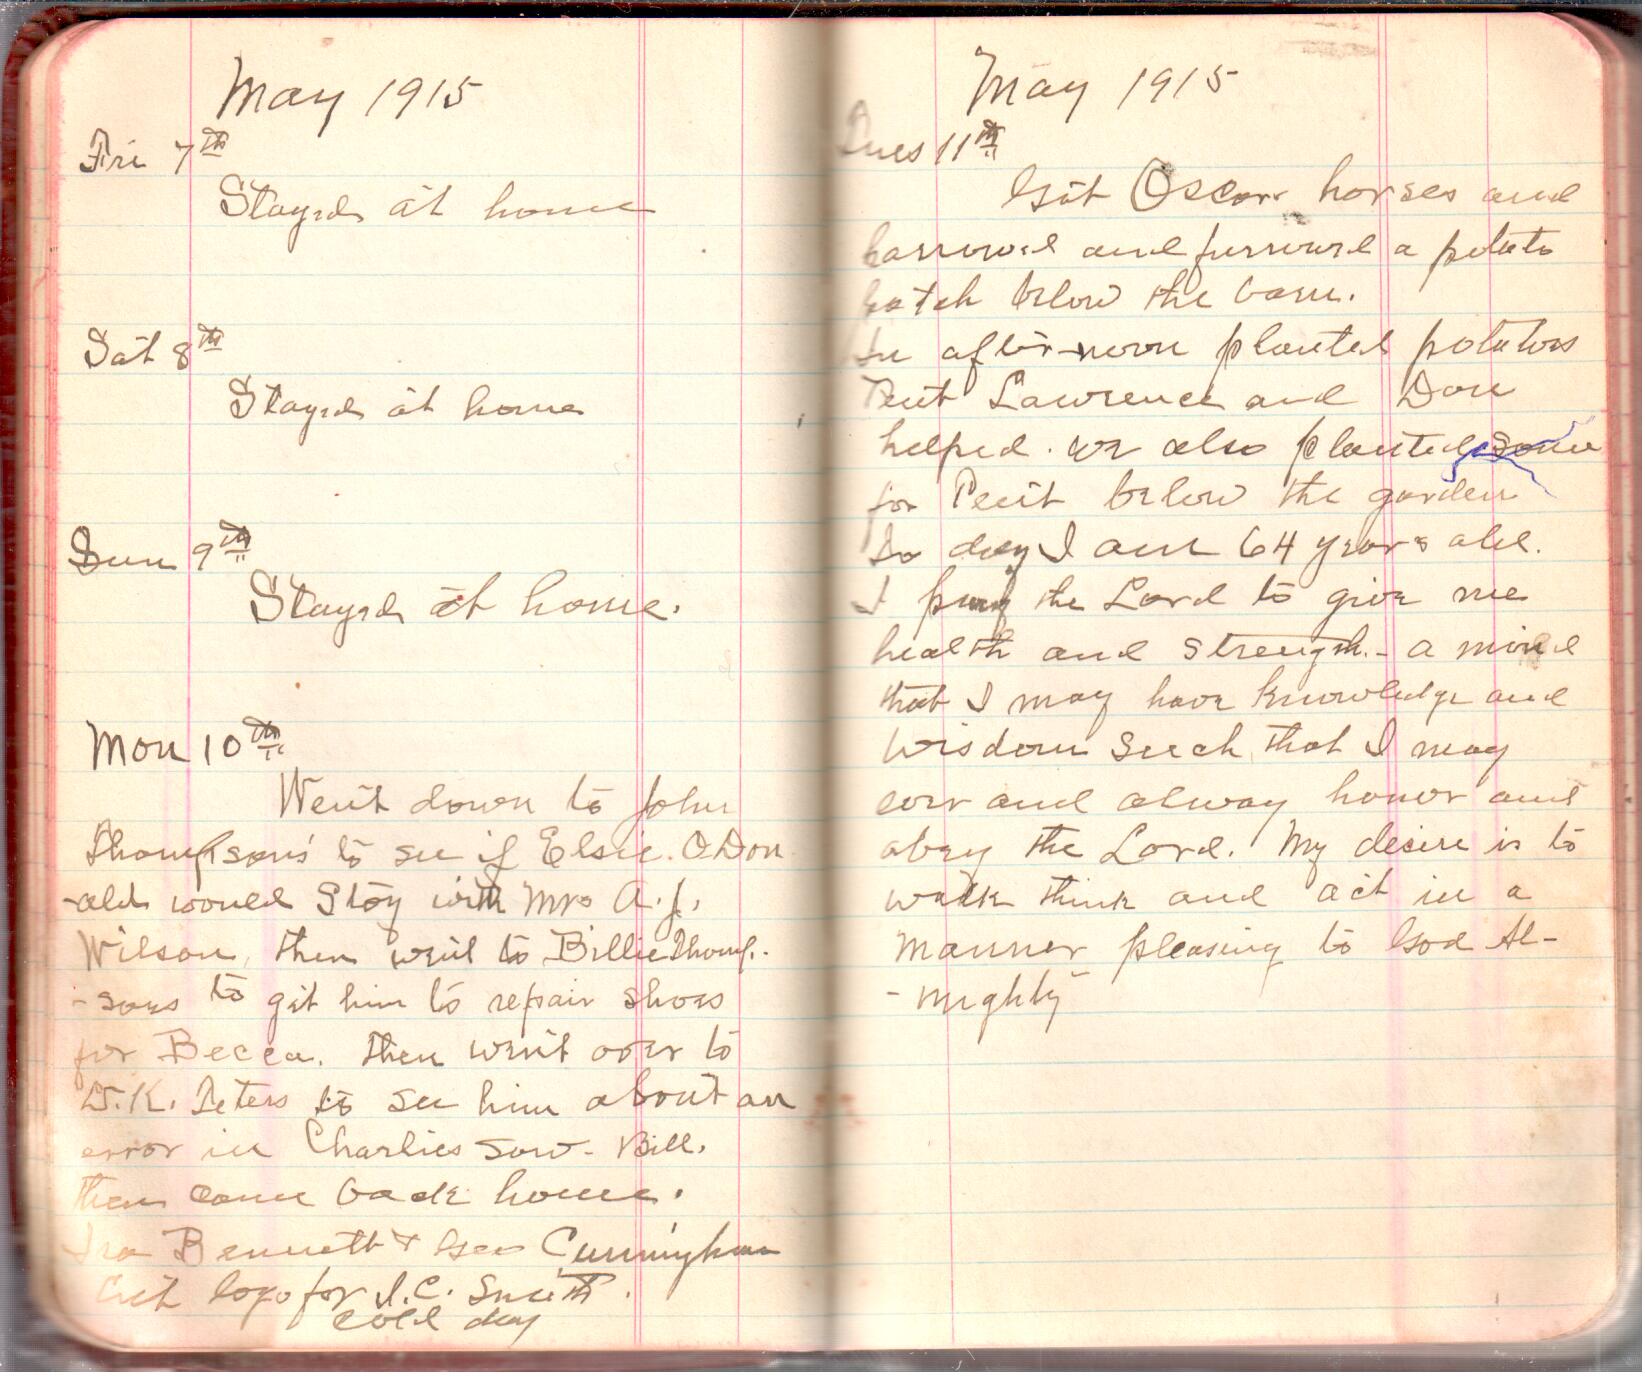 May 1915
Fri 7th
Stayed at home
Sat 8th
Stayed at home
Sun 9th
Stayed at home.
Mon 10th
Went down to John
Thompson's to see if Elsie. ODon
-ald would stay with Mrs A. J.
Wilson, then went to Billie Thomp.-
-sons to get him to repair shoes
for Becca. Then went over to
W. K. Peters to see him about an
error in Charlies Saw-Bill.
then came back home.
Ira Bennett & Geo Cunningham
Cut logs for I. C. Smith.
cold day
May 1915
Tues 11th
Got Oscar horses and
harrowed and furrowed a potato
patch below the barn.
In after-noon planted potatoes
Peirt Lawrence and Don
helped. we also planted some
for Peirt below the garden
To day I am 64 years old.
I pray the Lord to give me
health and strength - a mind
that I may have knowledge and
wisdom such that I may
ever and alway honor and
obey the Lord. My desire is to
walk think and act in a
manner pleasing to God Al-
- mighty